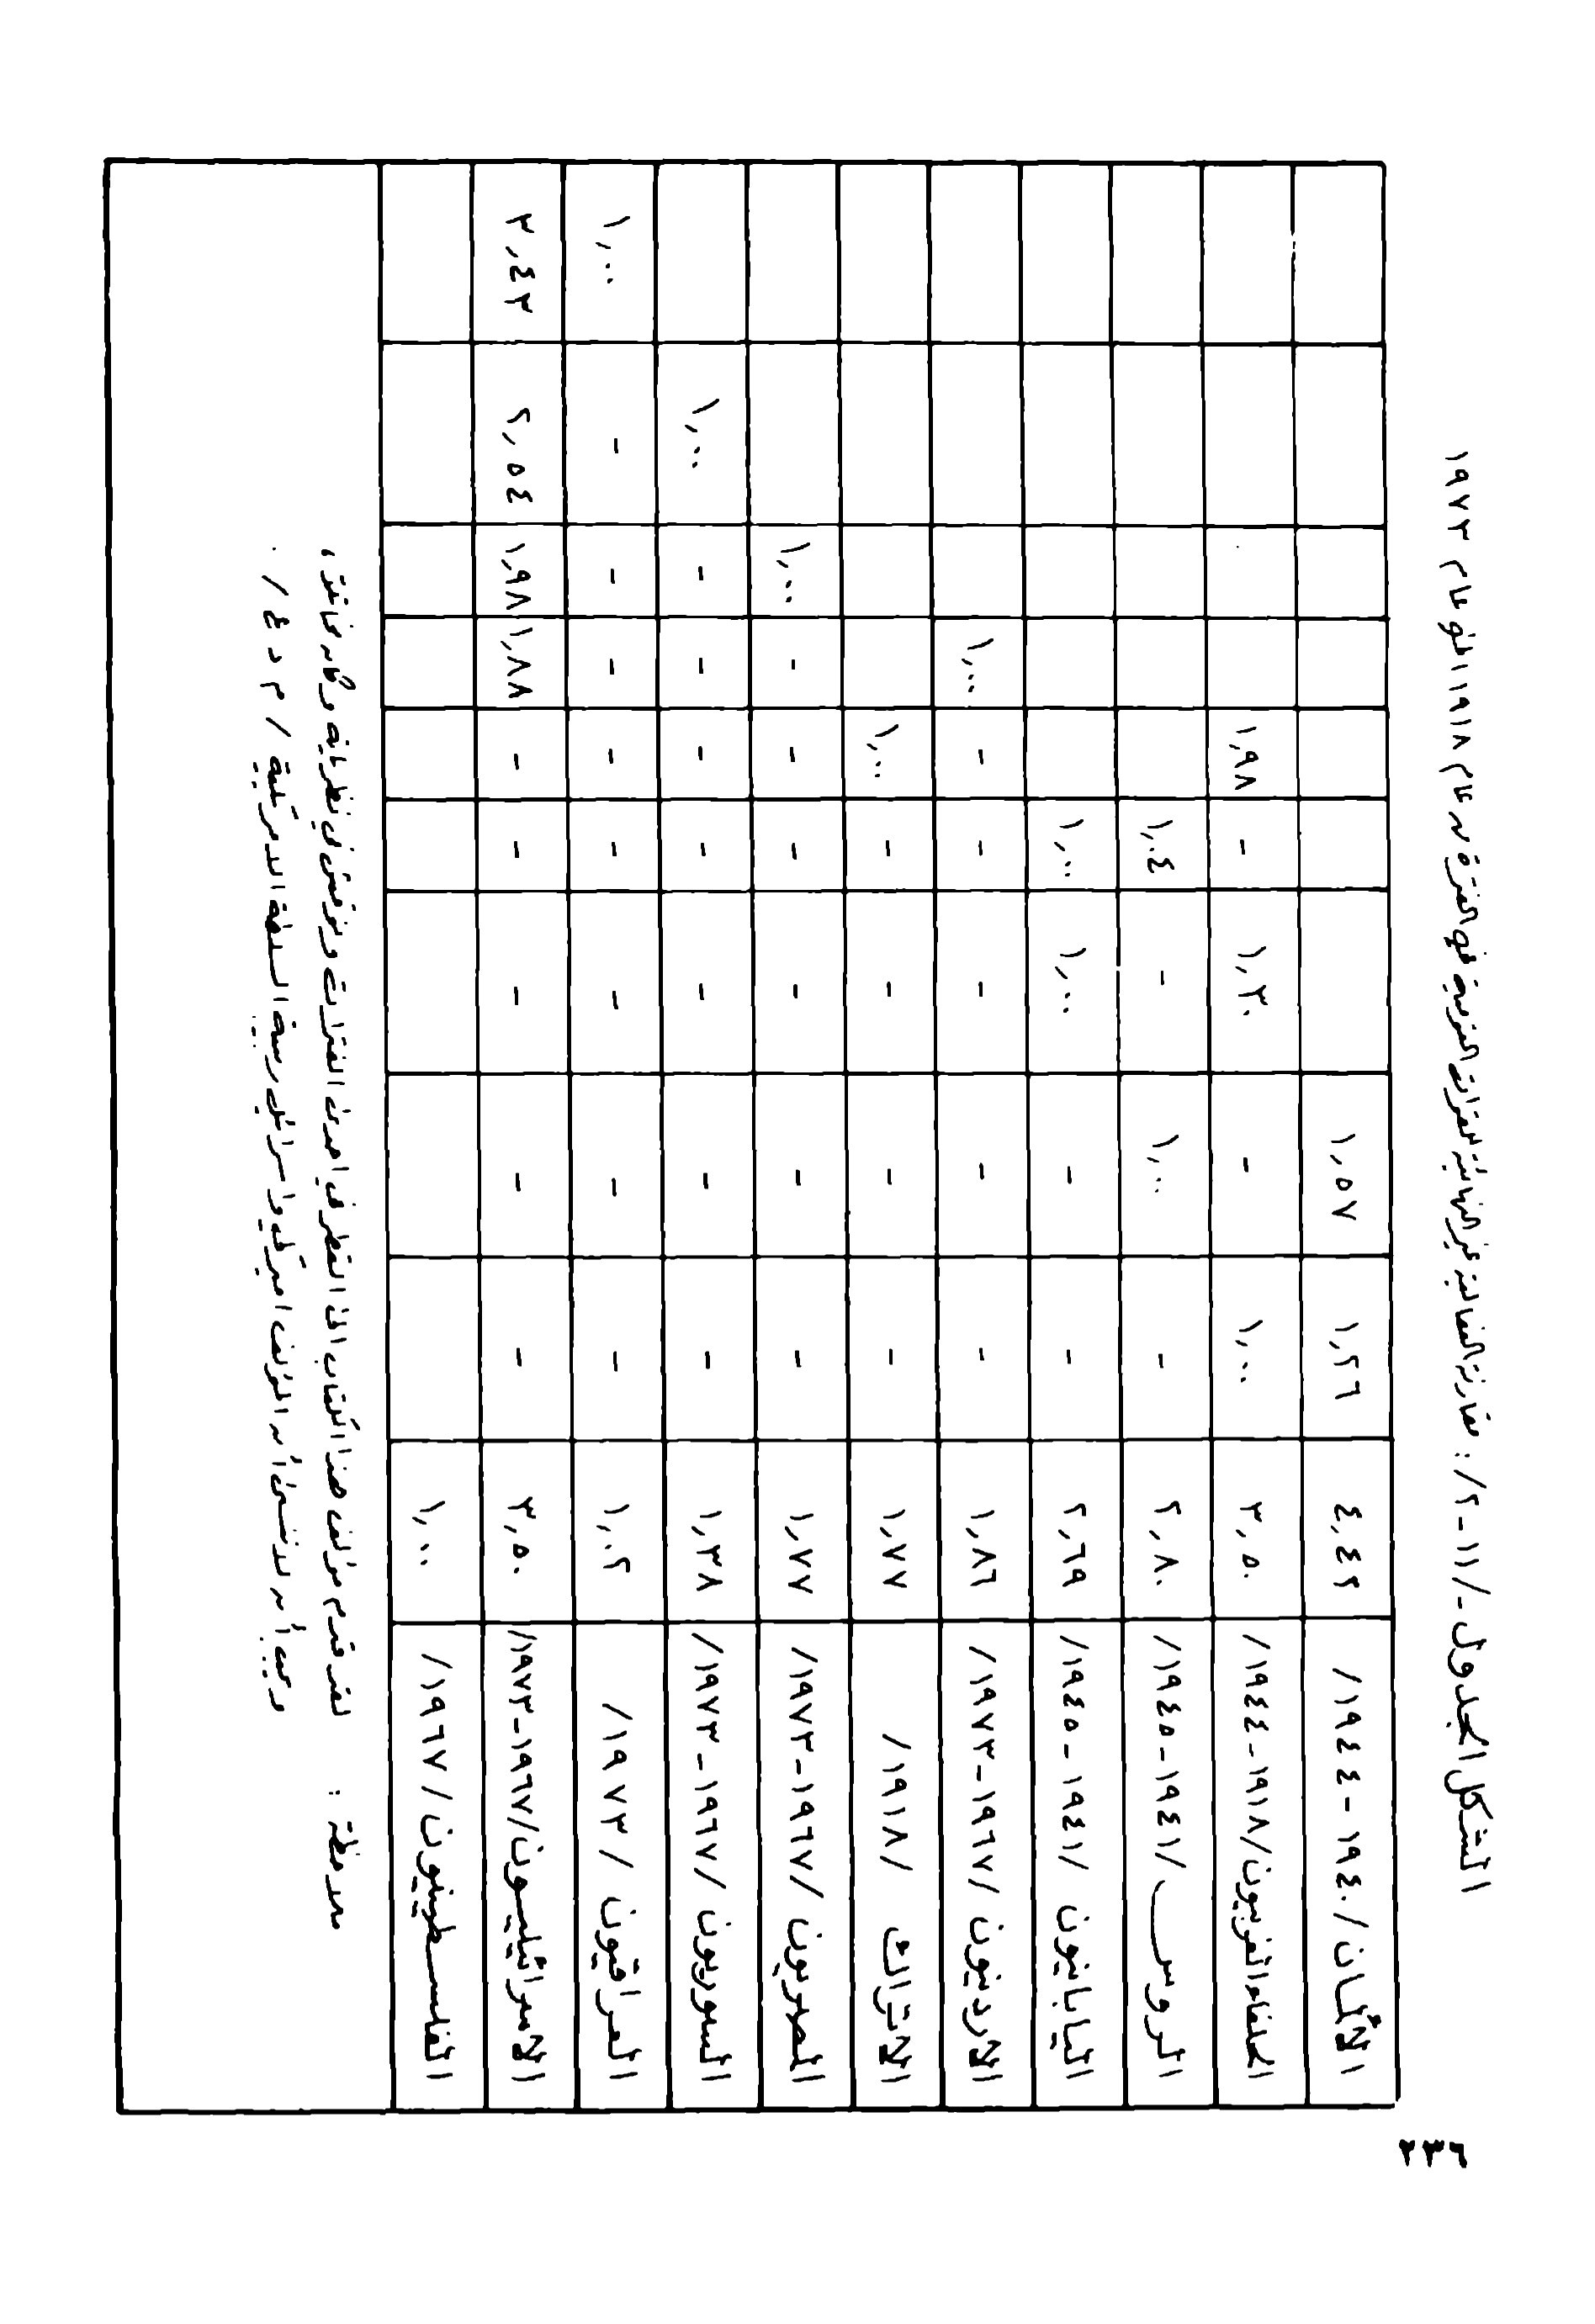 الشكل الجدول - /١١ - ٢/ : مقارنة الفعالية غير النهائية للقوات القومية في الفترة من عام ١٩١٨ الى عام ١٩٧٣
الألمان /١٩٤٠ - ١٩٤٤/ ٤,٤٢ ١,٢٦ ١,٥٧
الحلفاء الغربيون /١٩١٨ - ١٩٤٤/ ٣,٥٠ ١,٠٠ - ١,٣٠ - ١,٩٨
الروس /١٩٤١ - ١٩٤٥/ ٢,٨٠ - ١,٠٠ - ١,٠٤
اليابانيون /١٩٤١ - ١٩٤٥/ ٢,٦٩ - - ١,٠٠ ١,٠٠
الاردنيون /١٩٦٧ - ١٩٧٣/ ١,٨٦ - - - - - ١,٠٠
الاتراك /١٩١٨/ ١,٧٧ - - - - ١,٠٠
المصريون /١٩٦٧ - ١٩٧٣/ ١,٧٧ - - - - - - ١,٠٠
السوريون /١٩٦٧ - ١٩٧٣/ ١,٣٨ - - - - - - - ١,٠٠
العراقيون /١٩٧٣/ ١,٠٢ - - - - - - - - ١,٠٠
الاسرائيليون /١٩٦٧ - ١٩٧٣/ ٣,٥٠ - - - - - ١,٨٨ ١,٩٨ ٢,٥٤ ٣,٤٣
الفلسطينيون /١٩٦٧/ ١,٠٠
ملاحظة : لقد قدم مؤلف هذا الكتاب الى القطر في احدى الفترات ونوقش في نظرياته وكانه فائدة ،
ويجب أن لا ننسى أن المؤلف اميركي واسرائيل ربيبة السلطة الامريكية / م د ع / .
٢٣٢